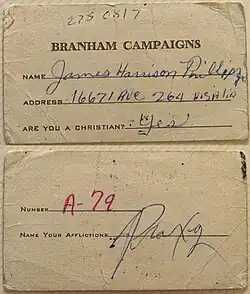 275 0817
BRANHAM CAMPAIGNS
NAME James Harrison Phillips
ADDRESS 16671 Ave 264 Visalia
ARE YOU A CHRISTIAN? Yes
NUMBER A-79
NAME YOUR AFFLICTIONS